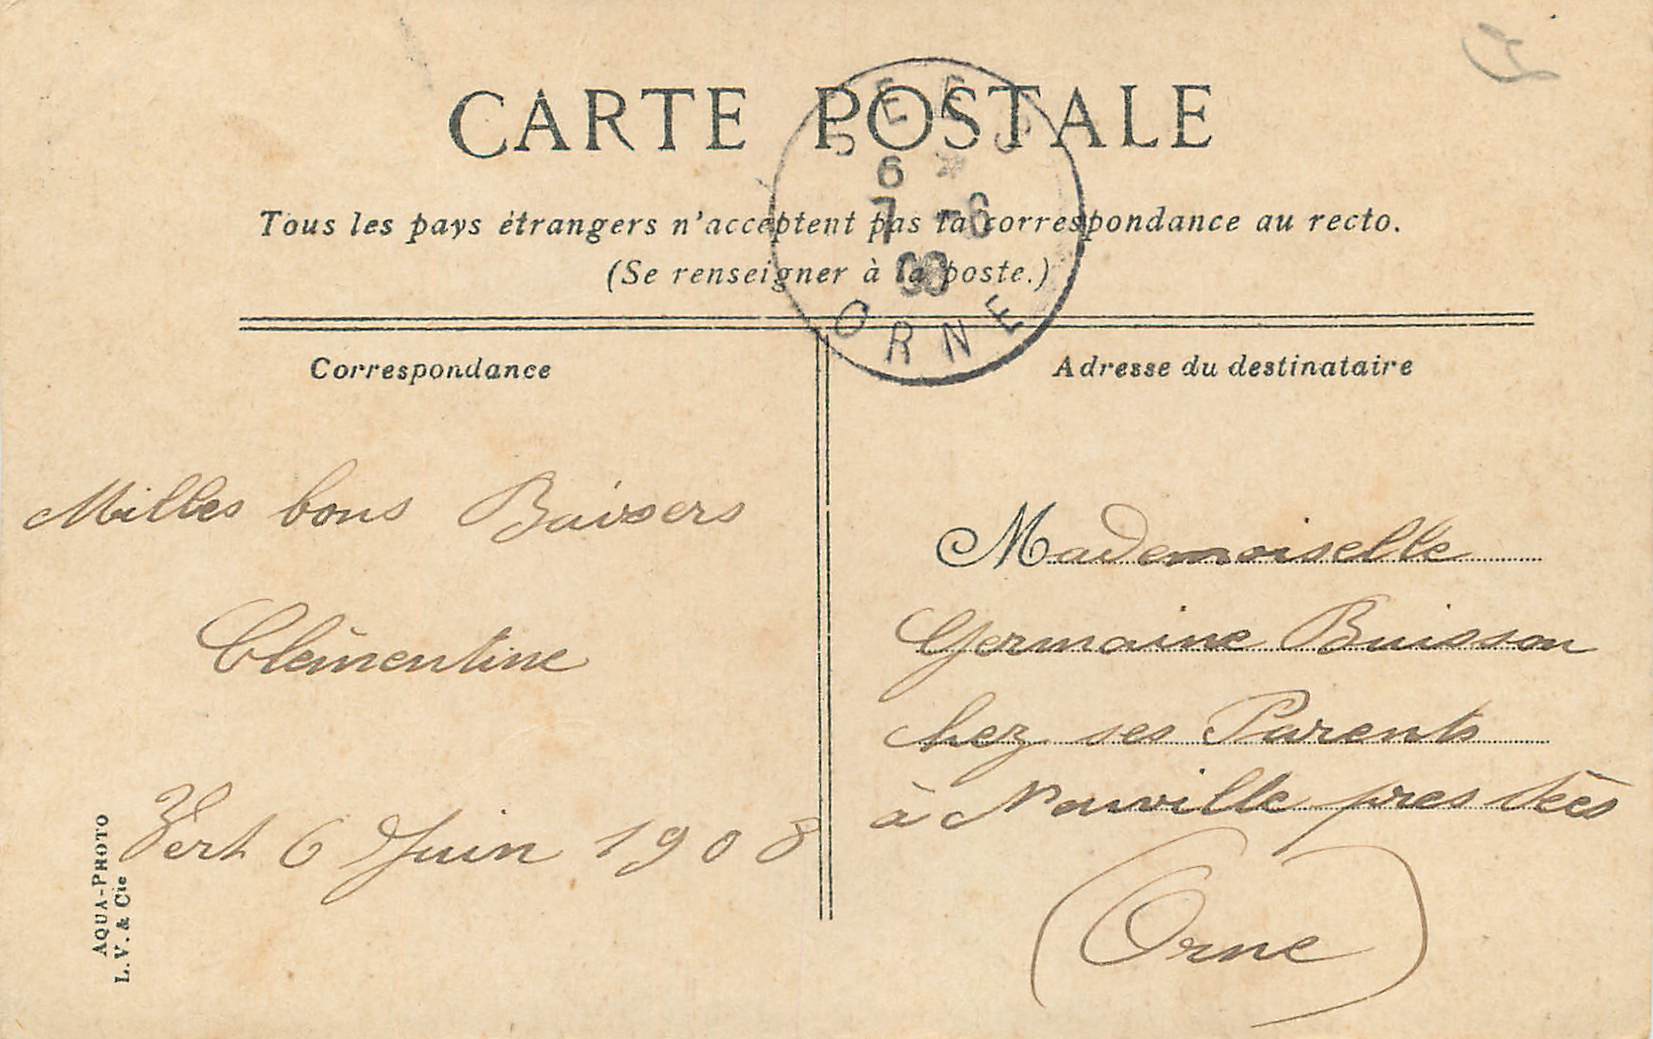 CARTE POSTALE
Tous les pays étrangers n'acceptent pas la correspondance au recto.
(Se renseigner à la poste.)
SEES
6 *
7 -6
08
ORNE
Correspondance
Milles bons Baisers
Clémentine
Vert 6 Juin 1908
AQUA-PHOTO
L. V. & Cie
Adresse du destinataire
Mademoiselle
Germaine Buisson
chez ses Parents
à Neuville pres Sées
(Orne)